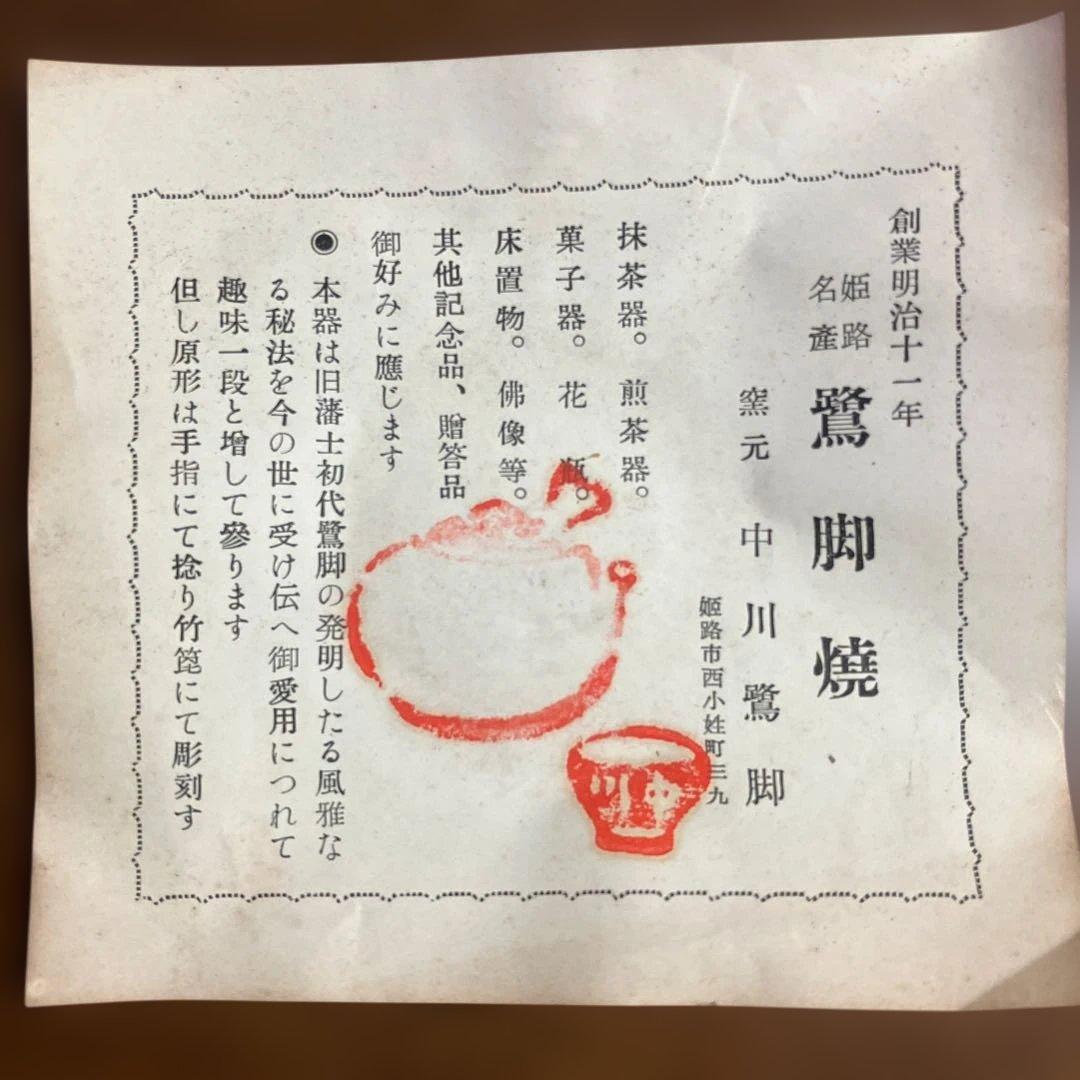 創業明治十一年
姫路
名產
鷺脚燒
窯元 中川鷺脚
姬路市西小姓町三九
抹茶器。煎茶器。
菓子器。花瓶。
床置物。佛像等。
其他記念品、贈答品
御好みに應じます
◉ 本器は旧藩士初代鷺脚の発明したる風雅な
る秘法を今の世に受け伝へ御愛用につれて
趣味一段と增して參ります
但し原形は手指にて捻り竹箆にて彫刻す
中川